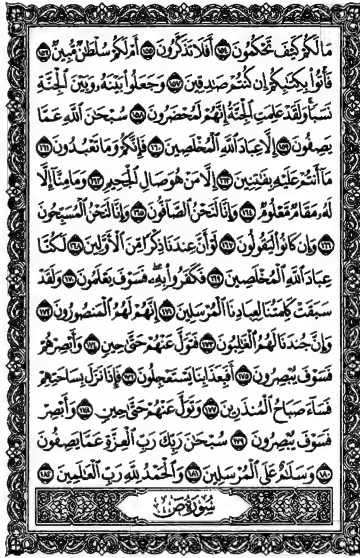 مَا لَكُمْ كَيْفَ تَحْكُمُونَ ١٥٤ أَفَلَا تَذَكَّرُونَ ١٥٥ أَمْ لَكُمْ سُلْطَانٌ مُبِينٌ ١٥٦
فَأْتُوا بِكِتَابِكُمْ إِنْ كُنْتُمْ صَادِقِينَ ١٥٧ وَجَعَلُوا بَيْنَهُ وَبَيْنَ الْجِنَّةِ
نَسَبًا وَلَقَدْ عَلِمَتِ الْجِنَّةُ إِنَّهُمْ لَمُحْضَرُونَ ١٥٨ سُبْحَنَ اللَّهِ عَمَّا
يَصِفُونَ ١٥٩ إِلَّا عِبَادَ اللَّهِ الْمُخْلَصِينَ ١٦٠ فَإِنَّكُمْ وَمَا تَعْبُدُونَ ١٦١
مَا أَنْتُمْ عَلَيْهِ بِفَاتِنِينَ ١٦٢ إِلَّا مَنْ هُوَ صَالِ الْجَحِيمِ ١٦٣ وَمَا مِنَّا إِلَّا
لَهُ مَقَامٌ مَعْلُومٌ ١٦٤ وَإِنَّا لَنَحْنُ الصَّافُّونَ ١٦٥ وَإِنَّا لَنَحْنُ الْمُسَبِّحُونَ
١٦٦ وَإِنْ كَانُوا لَيَقُولُونَ ١٦٧ لَوْ أَنَّ عِنْدَنَا ذِكْرًا مِنَ الْأَوَّلِينَ ١٦٨ لَكُنَّا
عِبَادَ اللَّهِ الْمُخْلَصِينَ ١٦٩ فَكَفَرُوا بِهِ فَسَوْفَ يَعْلَمُونَ ١٧٠ وَلَقَدْ
سَبَقَتْ كَلِمَتُنَا لِعِبَادِنَا الْمُرْسَلِينَ ١٧١ إِنَّهُمْ لَهُمُ الْمَنْصُورُونَ ١٧٢
وَإِنَّ جُنْدَنَا لَهُمُ الْغَالِبُونَ ١٧٣ فَتَوَلَّ عَنْهُمْ حَتَّى حِينٍ ١٧٤ وَأَبْصِرْهُمْ
فَسَوْفَ يُبْصِرُونَ ١٧٥ أَفَبِعَذَابِنَا يَسْتَعْجِلُونَ ١٧٦ فَإِذَا نَزَلَ بِسَاحَتِهِمْ
فَسَاءَ صَبَاحُ الْمُنْذَرِينَ ١٧٧ وَتَوَلَّ عَنْهُمْ حَتَّى حِينٍ ١٧٨ وَأَبْصِرْ
فَسَوْفَ يُبْصِرُونَ ١٧٩ سُبْحَنَ رَبِّكَ رَبِّ الْعِزَّةِ عَمَّا يَصِفُونَ
١٨٠ وَسَلَامٌ عَلَى الْمُرْسَلِينَ ١٨١ وَالْحَمْدُ لِلَّهِ رَبِّ الْعَالَمِينَ ١٨٢
سُورَةُ ص